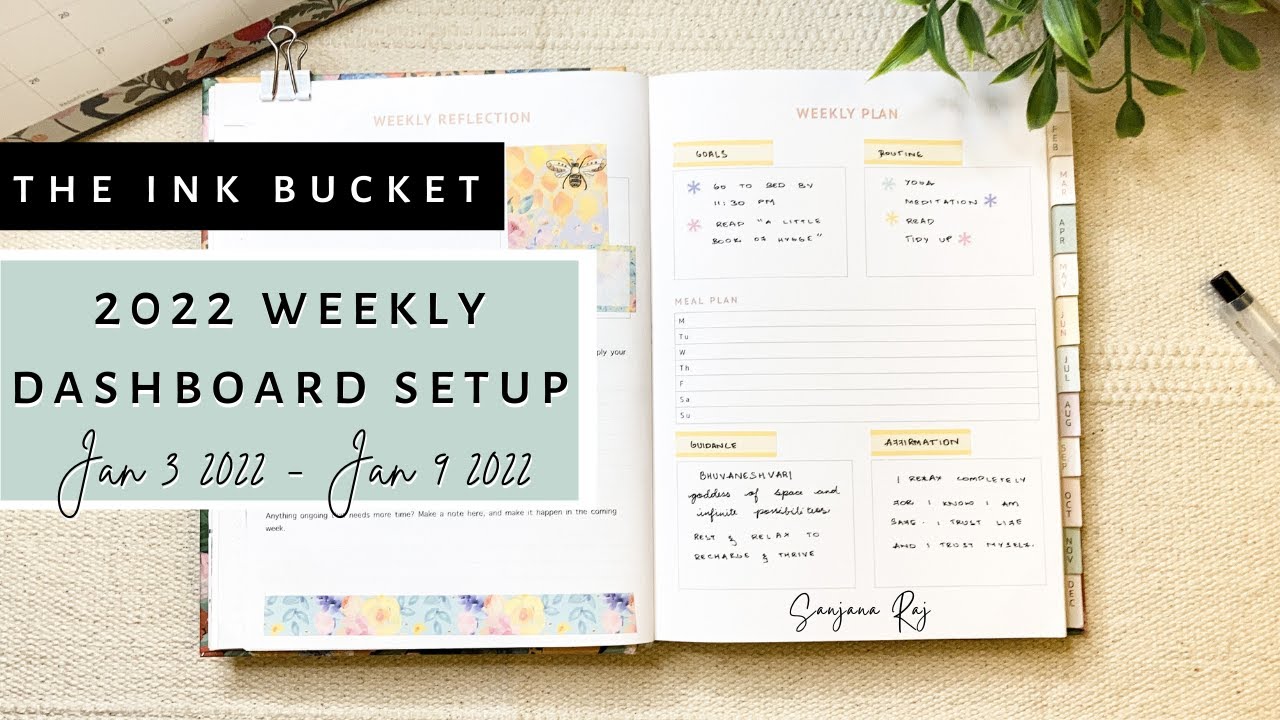 25
26
REPUBLIC DAY
THE INK BUCKET
2022 WEEKLY
DASHBOARD SETUP
Jan 3 2022 - Jan 9 2022
WEEKLY REFLECTION
ply your
Anything ongoing needs more time? Make a note here, and make it happen in the coming
week.
WEEKLY PLAN
GOALS
GO TO BED BY
11:30 PM
READ "A LITTLE
BOOK OF HYGGE"
ROUTINE
YOGA
MEDITATION
READ
TIDY UP
MEAL PLAN
M
Tu
W
Th
F
Sa
Su
GUIDANCE
BHUVANESHVARI
goddess of space and
infinite possibilities
REST & RELAX TO
RECHARGE & THRIVE
AFFIRMATION
I RELAX COMPLETELY
FOR I KNOW I AM
SAFE. I TRUST LIFE
AND I TRUST MYSELF.
Sanjana Raj
FEB
MAR
APR
MAY
JUN
JUL
AUG
SEP
OCT
NOV
DEC